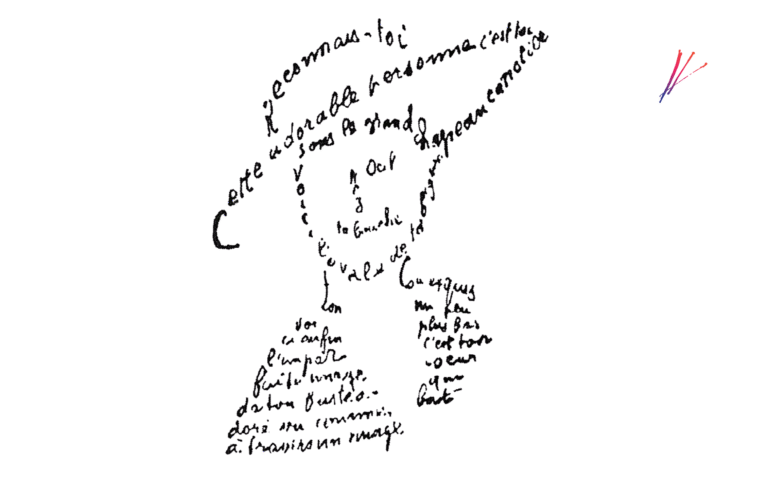 Reconnais-toi
Cette adorable personne c'est toi
sous le grand chapeau canotier
Œil
Nez
ta bouche
Voici l'ovale de ta figure
ton
cou exquis
Voi
ci enfin
l'impar
faite image
de ton buste a
doré vu comme
à travers un nuage
un peu
plus bas
c'est ton
cœur
qui
bat